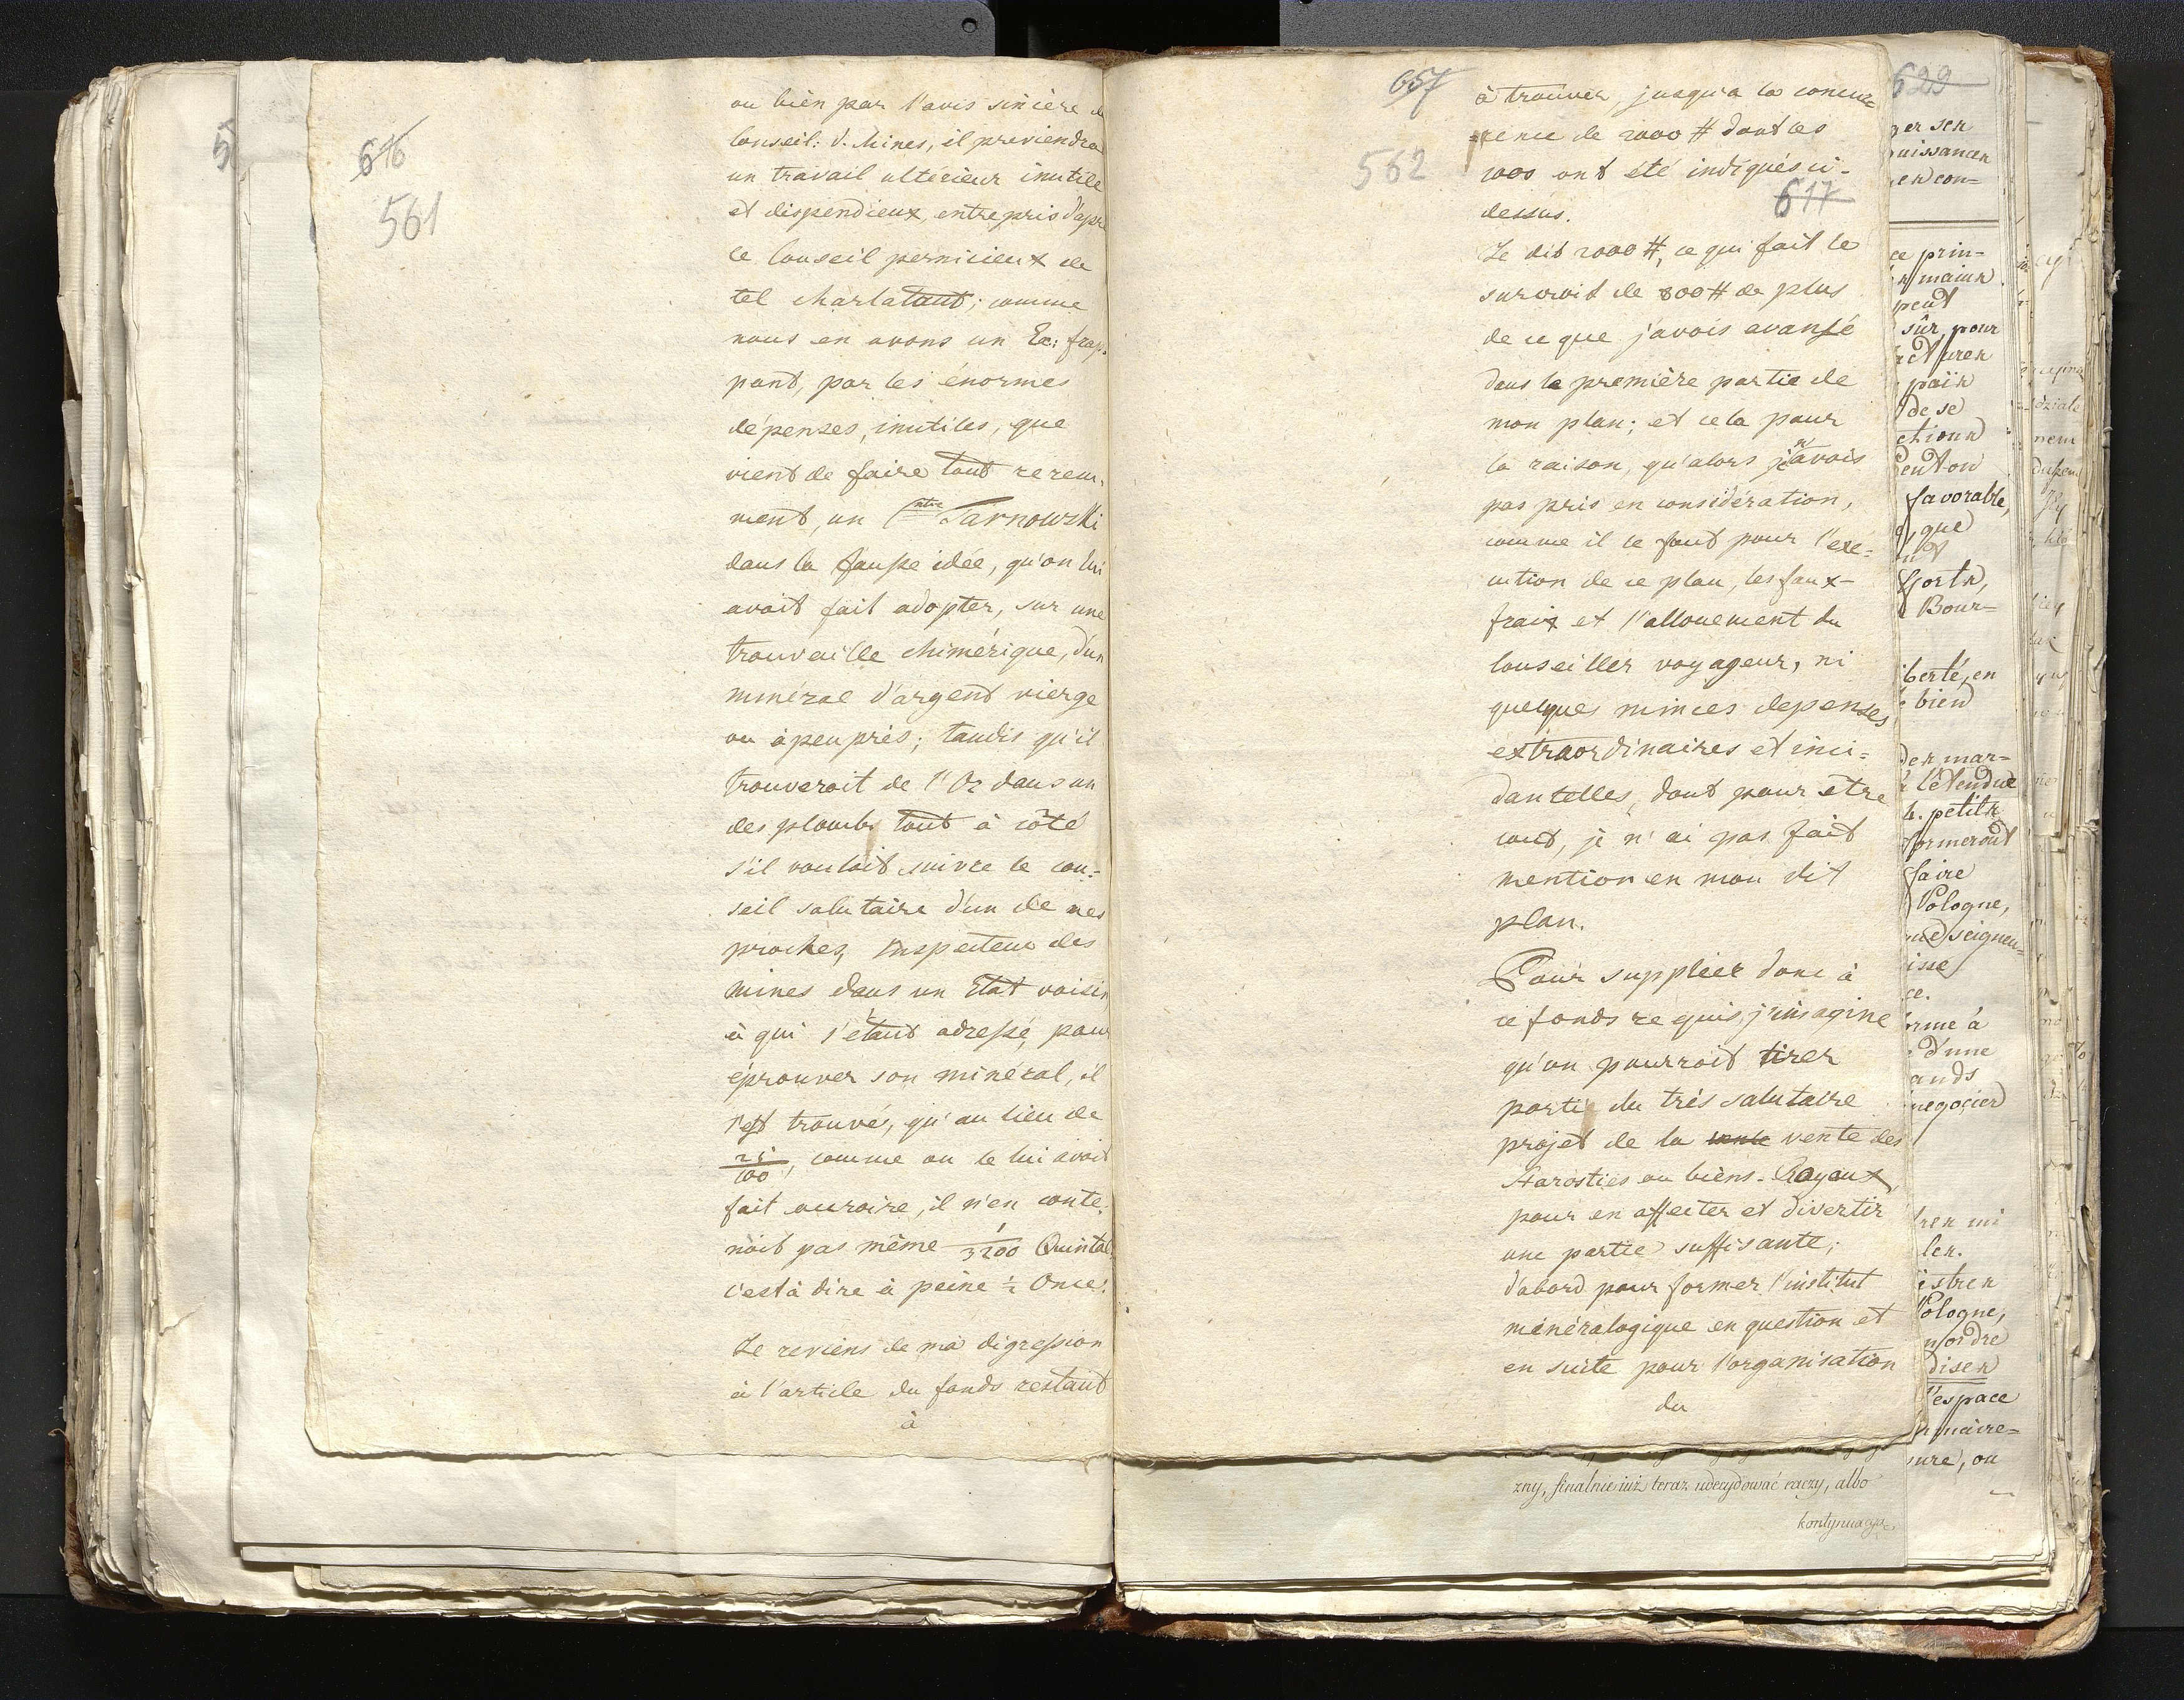 616
561
ou bièn par l'avis sincère de
Conseil: d. Mines, il previendra
un travail ultérieur inutile
et dispendieux, entrepris d'apre
le Conseil pernicieux de
tel charlatant; comme
nous en avons un Ex: frap-
pant, par les énormes
dépenses, inutiles, que
vient de faire tout recem,
ment, un Tarnowski
dans la fausse idée, qu'on lui
avoit fait adopter, sur une
trouvaille chimérique, d'un
minéral d'argent vierge
ou àpeuprès; tandis qu'il
trouveroit de l'Or dans un
des plombs tout à côté
s'il vouloit suivre le con:
seil salutaire d'un de mes
proches, Inspecteur des
mines dans un Etat voisin
à qui s'étant adressé, pour
éprouver son minéral, il
s'est trouvé, qu'au lieu de
25/100, comme on le lui avoit
fait accroire, il n'en conte:
noit pas même 1/3200 Quintal
c'està dire à peine ½ Once!
Je reviens de ma digression
à l'article du fonds restant
à
657
562
617
à trouver, jusqu'a la concur=
=rence de 2000 # dont les
1200 ont été indiqués ci-
dessus.
Je dis 2000 #, ce qui fait le
surcroit de 800 # de plus
de ce que j'avois avansé
dans la première partie de
mon plan; et cela pour
la raison, qu'alors je n'avois
pas pris en considération,
comme il le faut pour l'exe=
cution de ce plan, les faux-
fraix et l'allouement du
Conseiller voyageur, ni
quelques minces depenses
extraordinaires et inci=
dantelles, dont pour être
court, je n'ai pas fait
mention en mon dit
plan.
Pour supplèer donc à
ce fonds requis, j'imagine
qu'on pourroit tirer
parti du très salutaire
projet de la vente vente des
Starosties ou bièns-Royaux,
pour en affecter et divertir
une partie suffisante;
d'abord pour former l'institut
minéralogique en question et
en suite pour l'organisation
du
zny, finalnie iuż teraz udecydować raczy, albo
kontynuacya
629
ger sen
puissancen
en con=
ce prin=
maiun
peut
sûr, pour
de se
favorable,
que
Bour=
iberté, en
bien
den mar=
l'étendue
petits
formeront
faire
Pologne,
seigneu=
isse
ce.
orme à
d'une
ands
negocier
len.
istren
Pologne,
ordre
l'espace
sure, ou